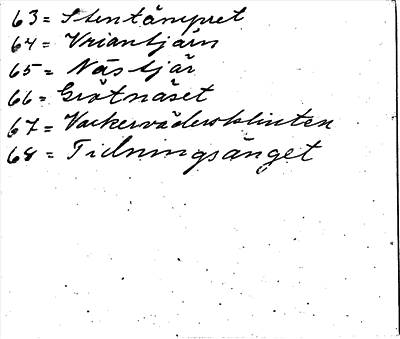 63 = Stentämpret
64 = Vriantjärn
65 = Näs tjär
66 = Grötnäset
67 = Vackerväderoklinten
68 = Tidningsänget